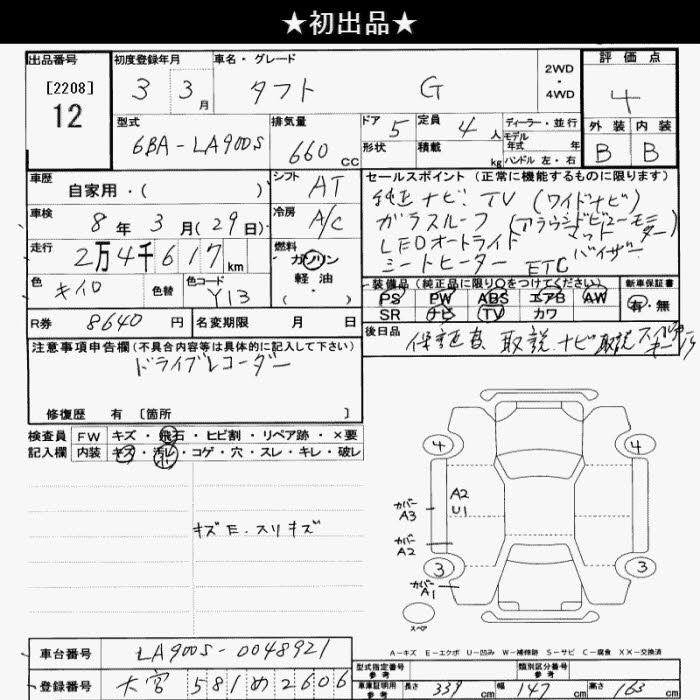 ★初出品★
出品番号 初度登録年月 車名・グレード 2WD・4WD 評価点
[2208] 12 3 3月 タフト G 4
型式 排気量 ドア 定員 ディーラー・並行 外装 内装
6BA-LA900S 660cc 5 4人 モデル年式 年 B B
形状 積載 kg ハンドル 左・右
車歴 シフト セールスポイント (正常に機能するものに限ります)
自家用・( ) AT 純正ナビ TV (ワイドナビ)
車検 冷房 ガラスルーフ (アラウンドビューモニター)
8年3月(29日) A/C LEDオートライト マット バイザー
走行 燃料 シートヒーター ETC
2万4千617km ガソリン
軽油
( )
色 色替 色コード 装備品(純正品に限り○をつけてください) 新車保証書
キイロ Y13 PS PW ABS エアB AW 有・無
SR ナビ TV カワ
R券 8640円 名変期限 月 日 後日品
保証書 取説 ナビ取説
注意事項申告欄(不具合内容等は具体的に記入して下さい)
ドライブレコーダー
修復歴 有 [箇所 ]
検査員 FW キズ・飛石・ヒビ割・リペア跡・×要
記入欄 内装 キズ・汚レ・コゲ・穴・スレ・キレ・破レ
4 4
カバーA3 A2
U1
キズE.スリキズ
カバーA2
3 3
カバーA1
スペア
A-キズ E-エクボ U-凹み W-補修跡 S-サビ C-腐食 XX-交換済
車台番号 LA900S-0048921
型式指定番号 参考 類別区分番号 参考
登録番号 大宮 581 め 2606
車庫証明用 参考 長さ 339cm 幅 147cm 高さ 163cm